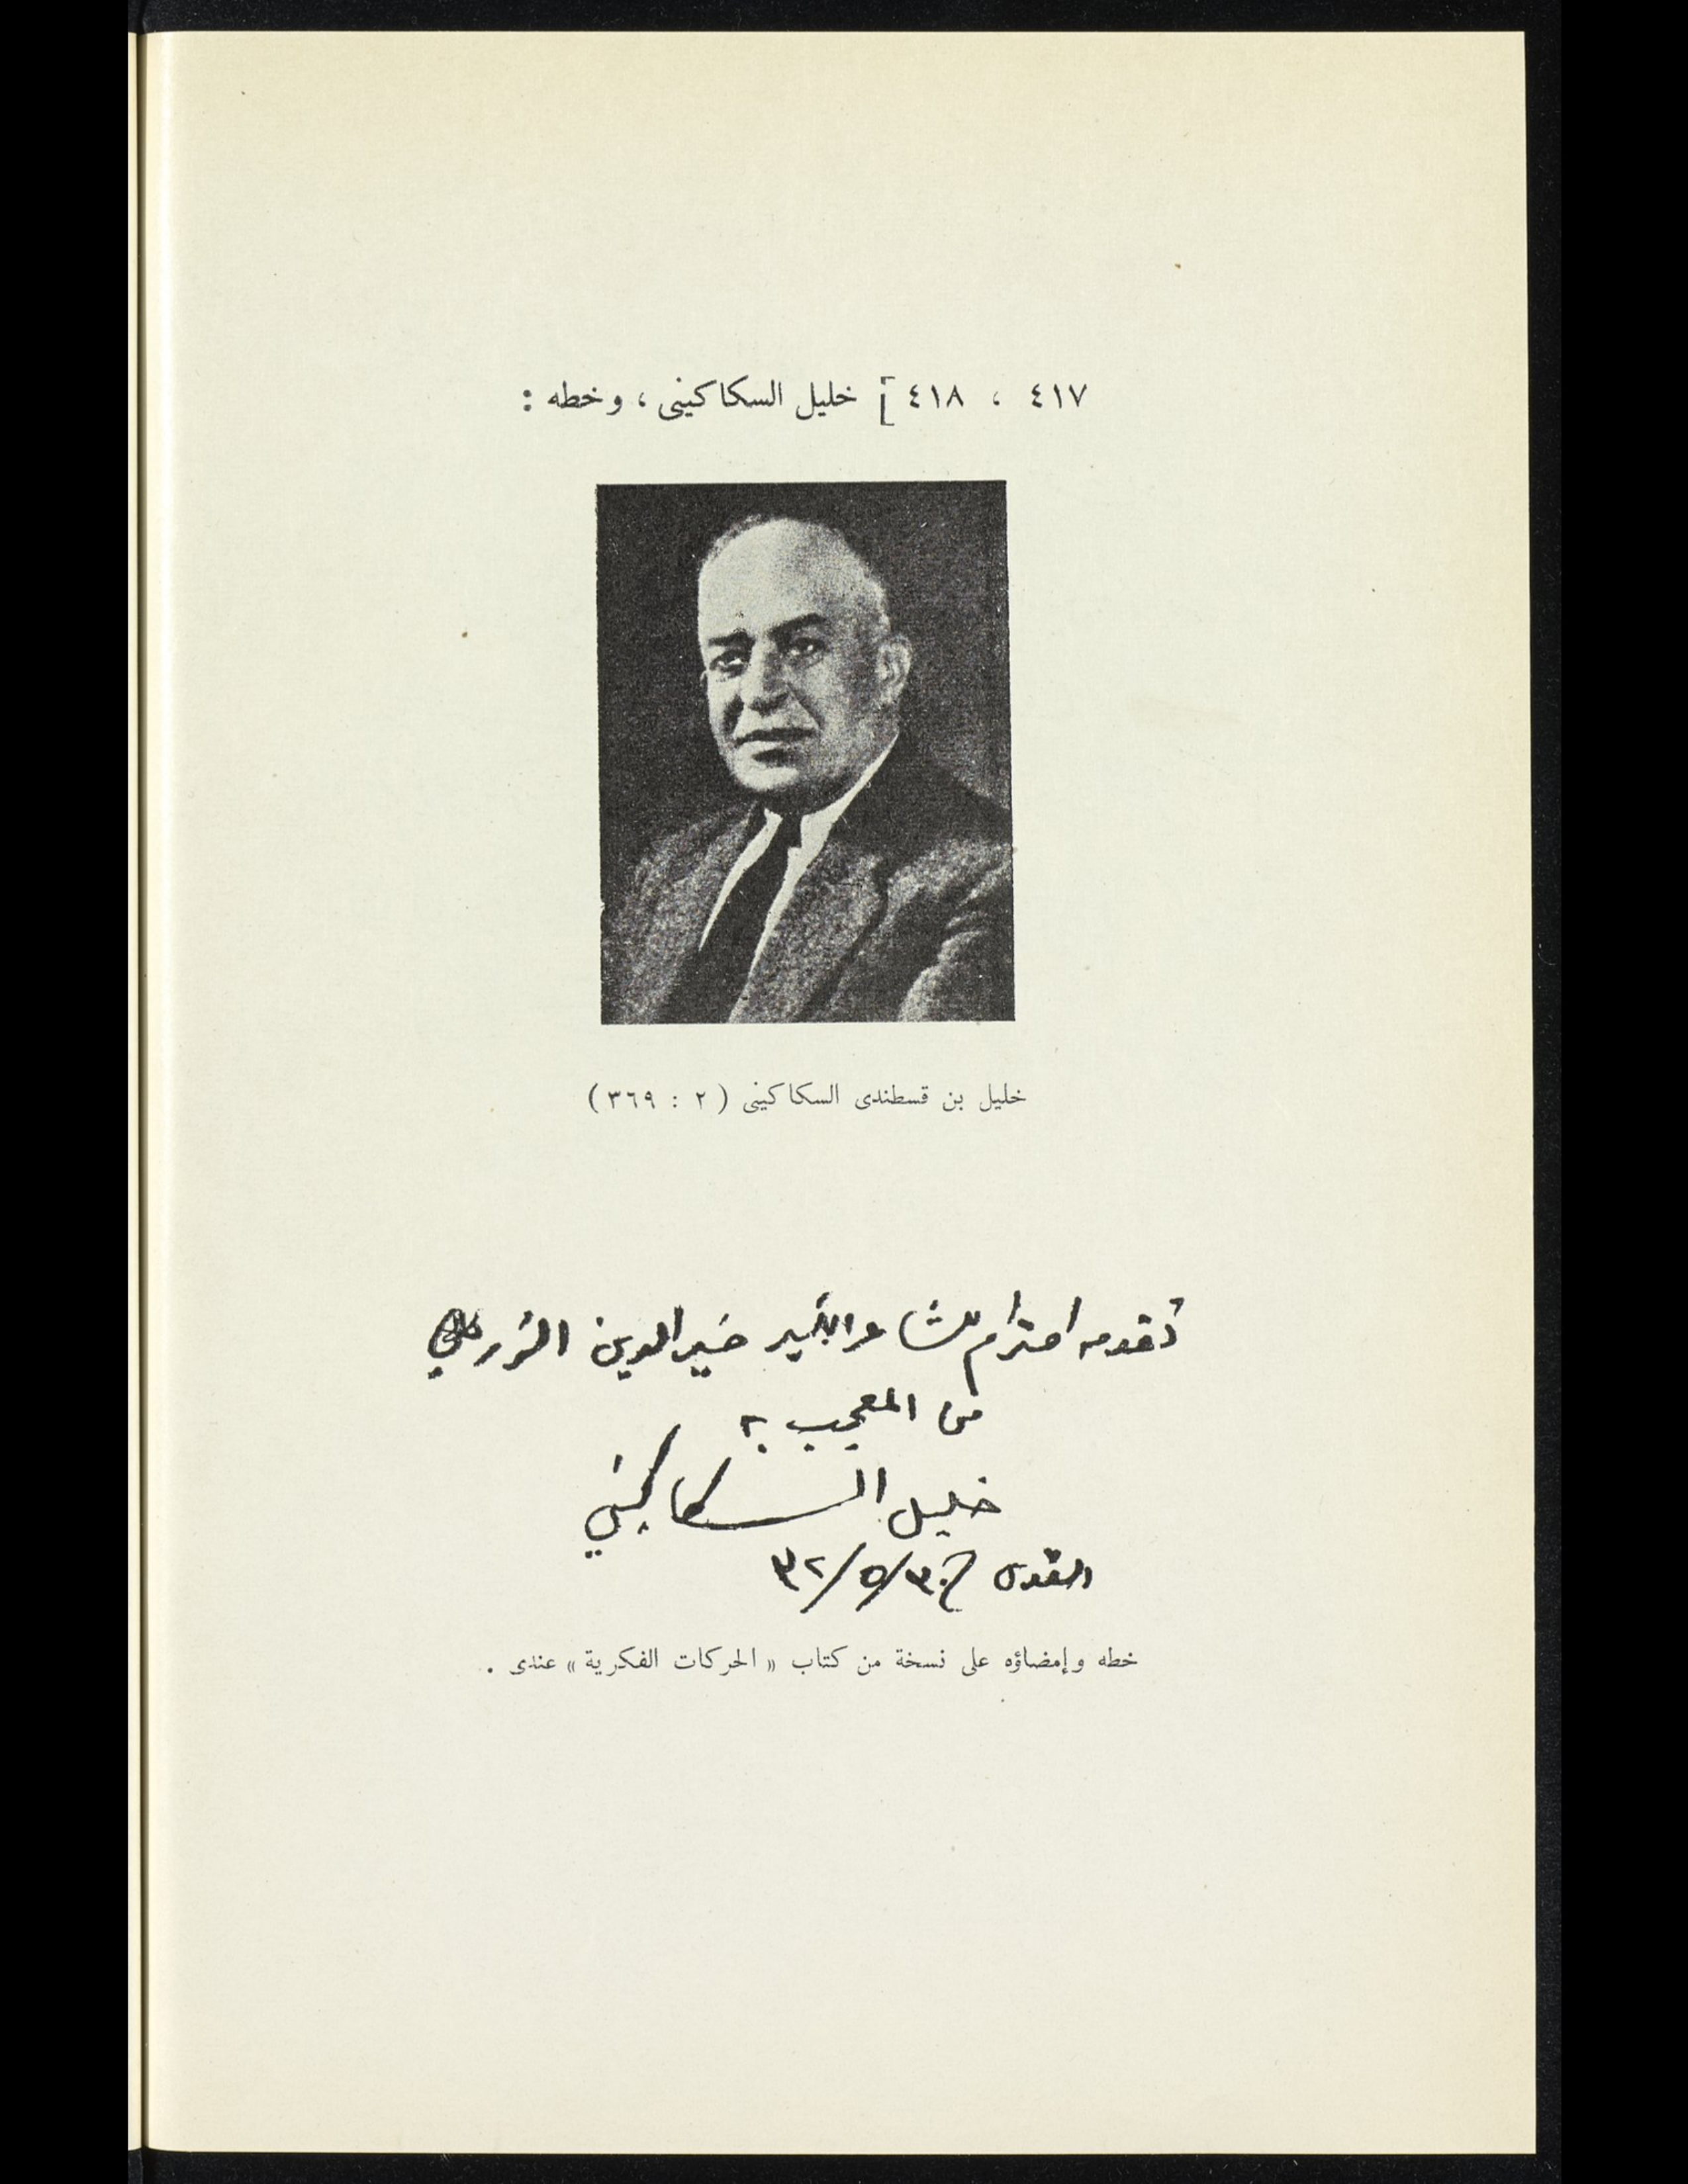 ٤١٧ ، ٤١٨ [ خليل السكاكينى ، وخطه :
خليل بن قسطندى السكاكينى ( ٢ : ٣٦٩ )
تقدمه احترام للشاعر الكبير خير الدين الزركلي
من المعجب به
خليل السكاكيني
القدس في ٣٠/٥/٣٢
خطه وإمضاؤه على نسخة من كتاب « الحركات الفكرية » عندى .